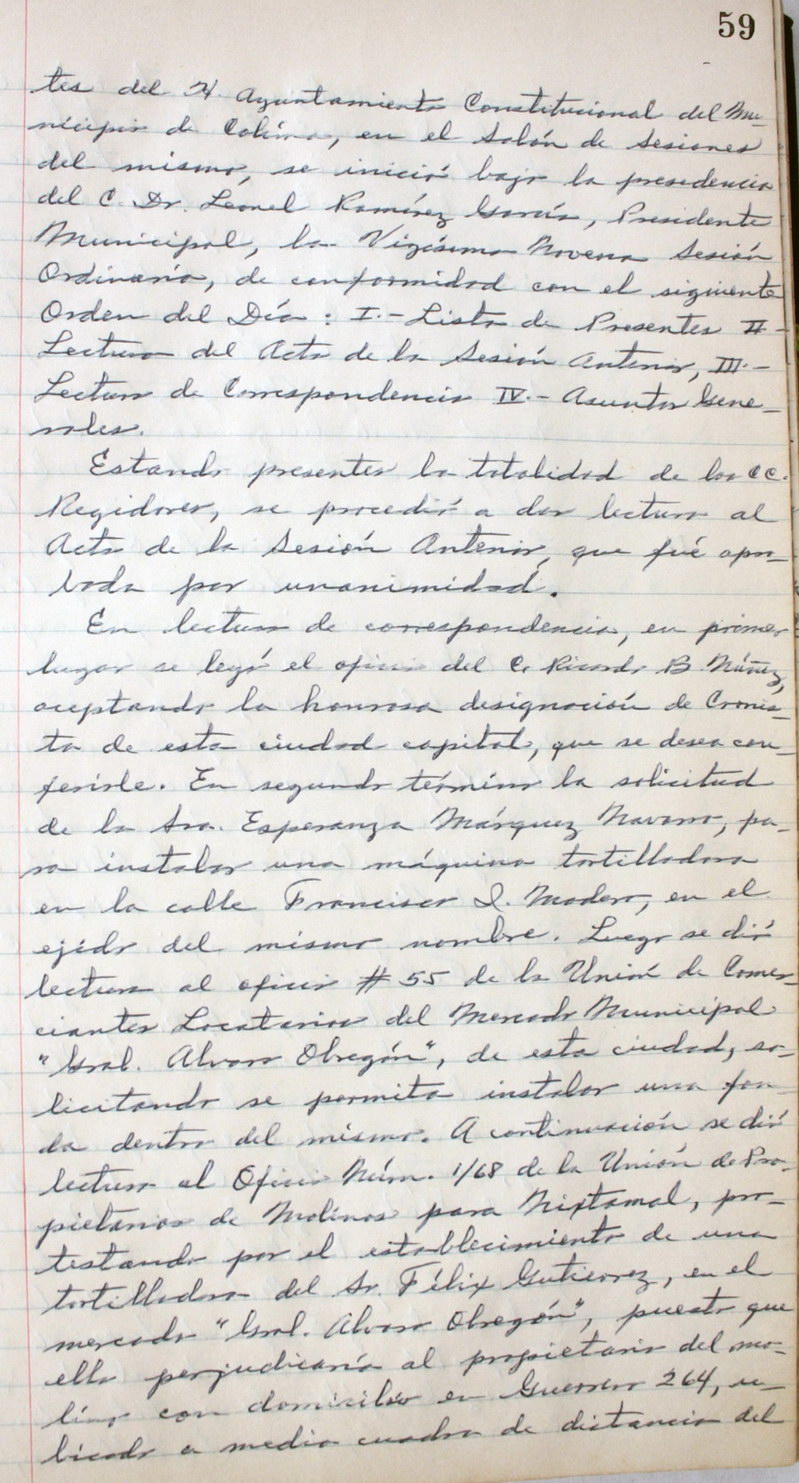 59
tes del H. Ayuntamiento Constitucional del Mu-
nicipio de Colima, en el Salón de Sesiones
del mismo, se inició bajo la presidencia
del C. Dr. Leonel Ramírez García, Presidente
Municipal, la Vigésima Novena Sesión
Ordinaria, de conformidad con el siguiente
Orden del Día: I.- Lista de Presentes II-
Lectura del Acta de la Sesión Anterior, III.-
Lectura de Correspondencia IV.- Asuntos Gene-
rales.
Estando presentes la totalidad de los CC.
Regidores, se procedió a dar lectura al
Acta de la Sesión Anterior, que fué apro-
bada por unanimidad.
En lectura de correspondencia, en primer
lugar se leyó el oficio del C. Ricardo B. Núñez,
aceptando la honrosa designación de Cronis-
ta de esta ciudad capital, que se desea con-
ferirle. En segundo término la solicitud
de la Sra. Esperanza Márquez Navarro, pa-
ra instalar una máquina tortilladora
en la calle Francisco I. Madero, en el
ejido del mismo nombre. Luego se dió
lectura al oficio # 55 de la Unión de Comer-
ciantes Locatarios del Mercado Municipal
"Gral. Alvaro Obregón", de esta ciudad, so-
licitando se permita instalar una fon-
da dentro del mismo. A continuación se dió
lectura al Oficio Núm. 1/68 de la Unión de Pro-
pietarios de Molinos para Nixtamal, pro-
testando por el establecimiento de una
tortilladora del Sr. Félix Gutierrez, en el
mercado "Gral. Alvaro Obregón", puesto que
ello perjudicaría al propietario del mo-
lino con domicilio en Guerrero 264, u-
bicado a media cuadra de distancia del